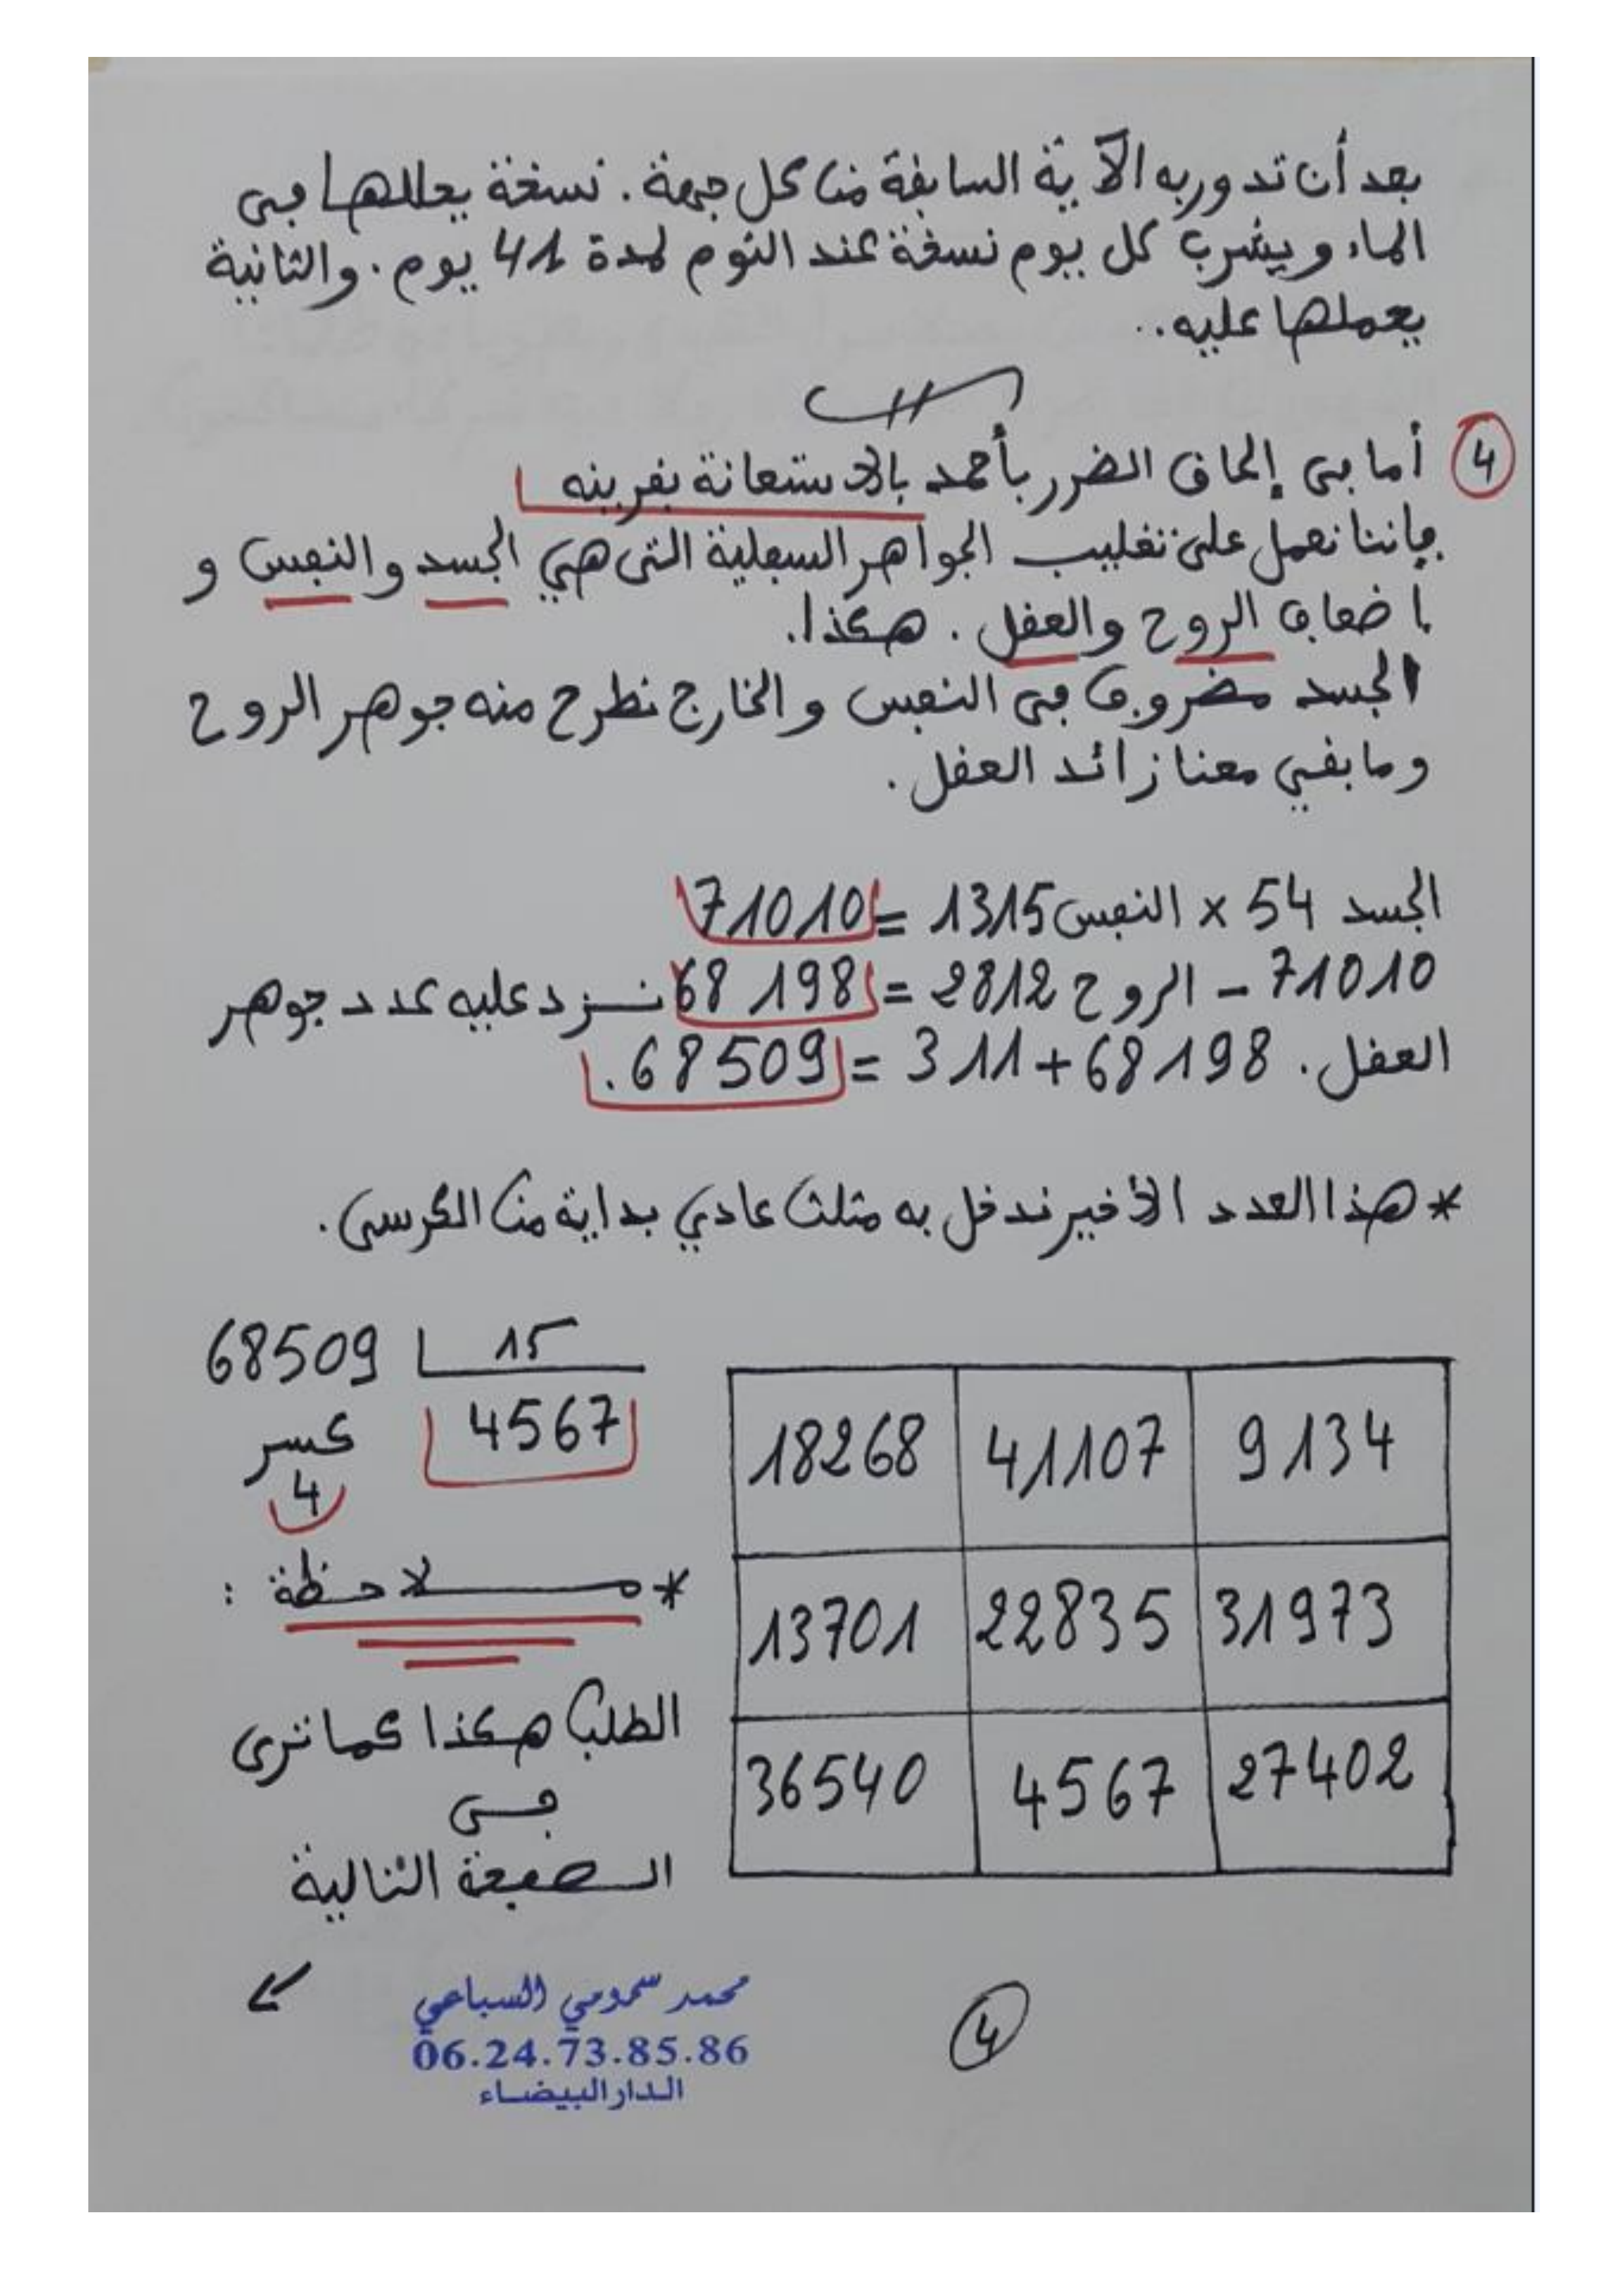 بعد أن تدور به الآية السابقة من كل جهة. نسخة يحللها في
الماء ويشرب كل يوم نسخة عند النوم لمدة 41 يوم. والثانية
يحملها عليه..
④ أما في إلحاق الضرر بأحمد بالاستعانة بقرينه
فإننا نعمل على تغليب الجواهر السفلية التي هي الجسد والنفس و
إضعاف الروح والعقل. هكذا.
الجسد مضروب في النفس والخارج نطرح منه جوهر الروح
وما بقي معنا زائد العقل.
الجسد 54 × النفس 1315 = 71010
71010 - الروح 2812 = 68198 نزد عليه عدد جوهر
العقل. 68198 + 311 = 68509.
* هذا العدد الأخير ندخل به مثلث عادي بداية من الكرسي.
68509 15
4567
كسر
4
18268 41107 9134
13701 22835 31973
36540 4567 27402
* ملاحظة :
الطلب هكذا كما ترى
في
الصفحة التالية
محمد سمومي السباعي
06.24.73.85.86
الدار البيضاء
4